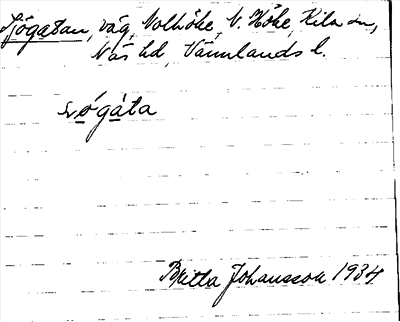 Sjögatan, väg, Nolhöke, V. Höke, Kila sn,
Näs hd, Värmlands l.
sjögata
Britta Johansson 1934